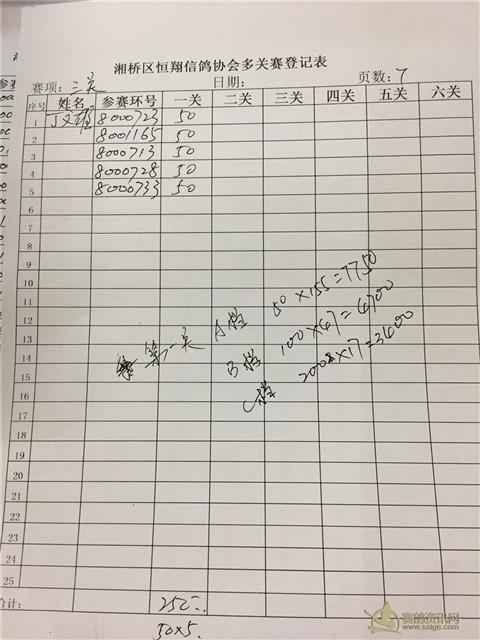 湘桥区恒翔信鸽协会多关赛登记表
赛项: 三关 日期: 页数: 7
序号 姓名 参赛环号 一关 二关 三关 四关 五关 六关
1 8000723 50
2 8001165 50
3 8000713 50
4 8000728 50
5 8000733 50
6
7
8
9
10
11
12
13
14
15
16
17
18
19
20
21
22
23
24
25
第一关 A档 50×155=7750
B档 100×47=4700
C档 200×17=3400
合计: 250
50×5
赛鸽资讯网
www.saige.com